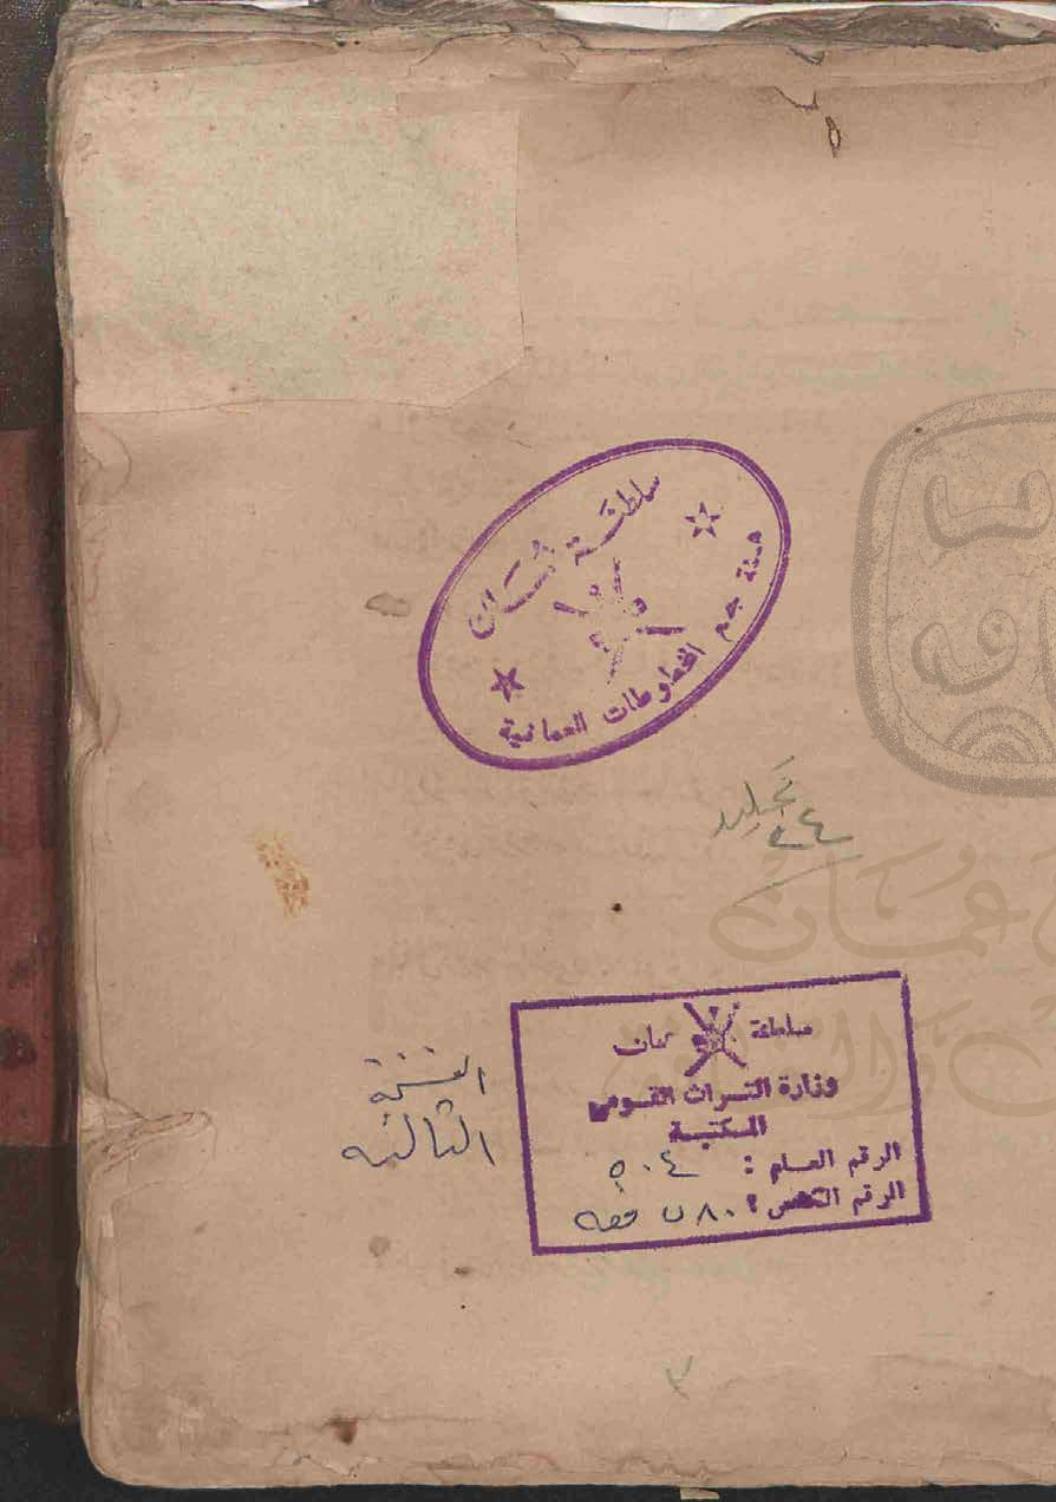 سلطنة عُمان
هيئة جمع المخطوطات العمانية
تجليد
٢٤
سلطنة عمان
وزارة التراث القومي
المكتبة
الرقم العام : ٥٠٤
الرقم الخاص : ٨٠ ن فقه
النسخة
الثالثه
٣
عمان